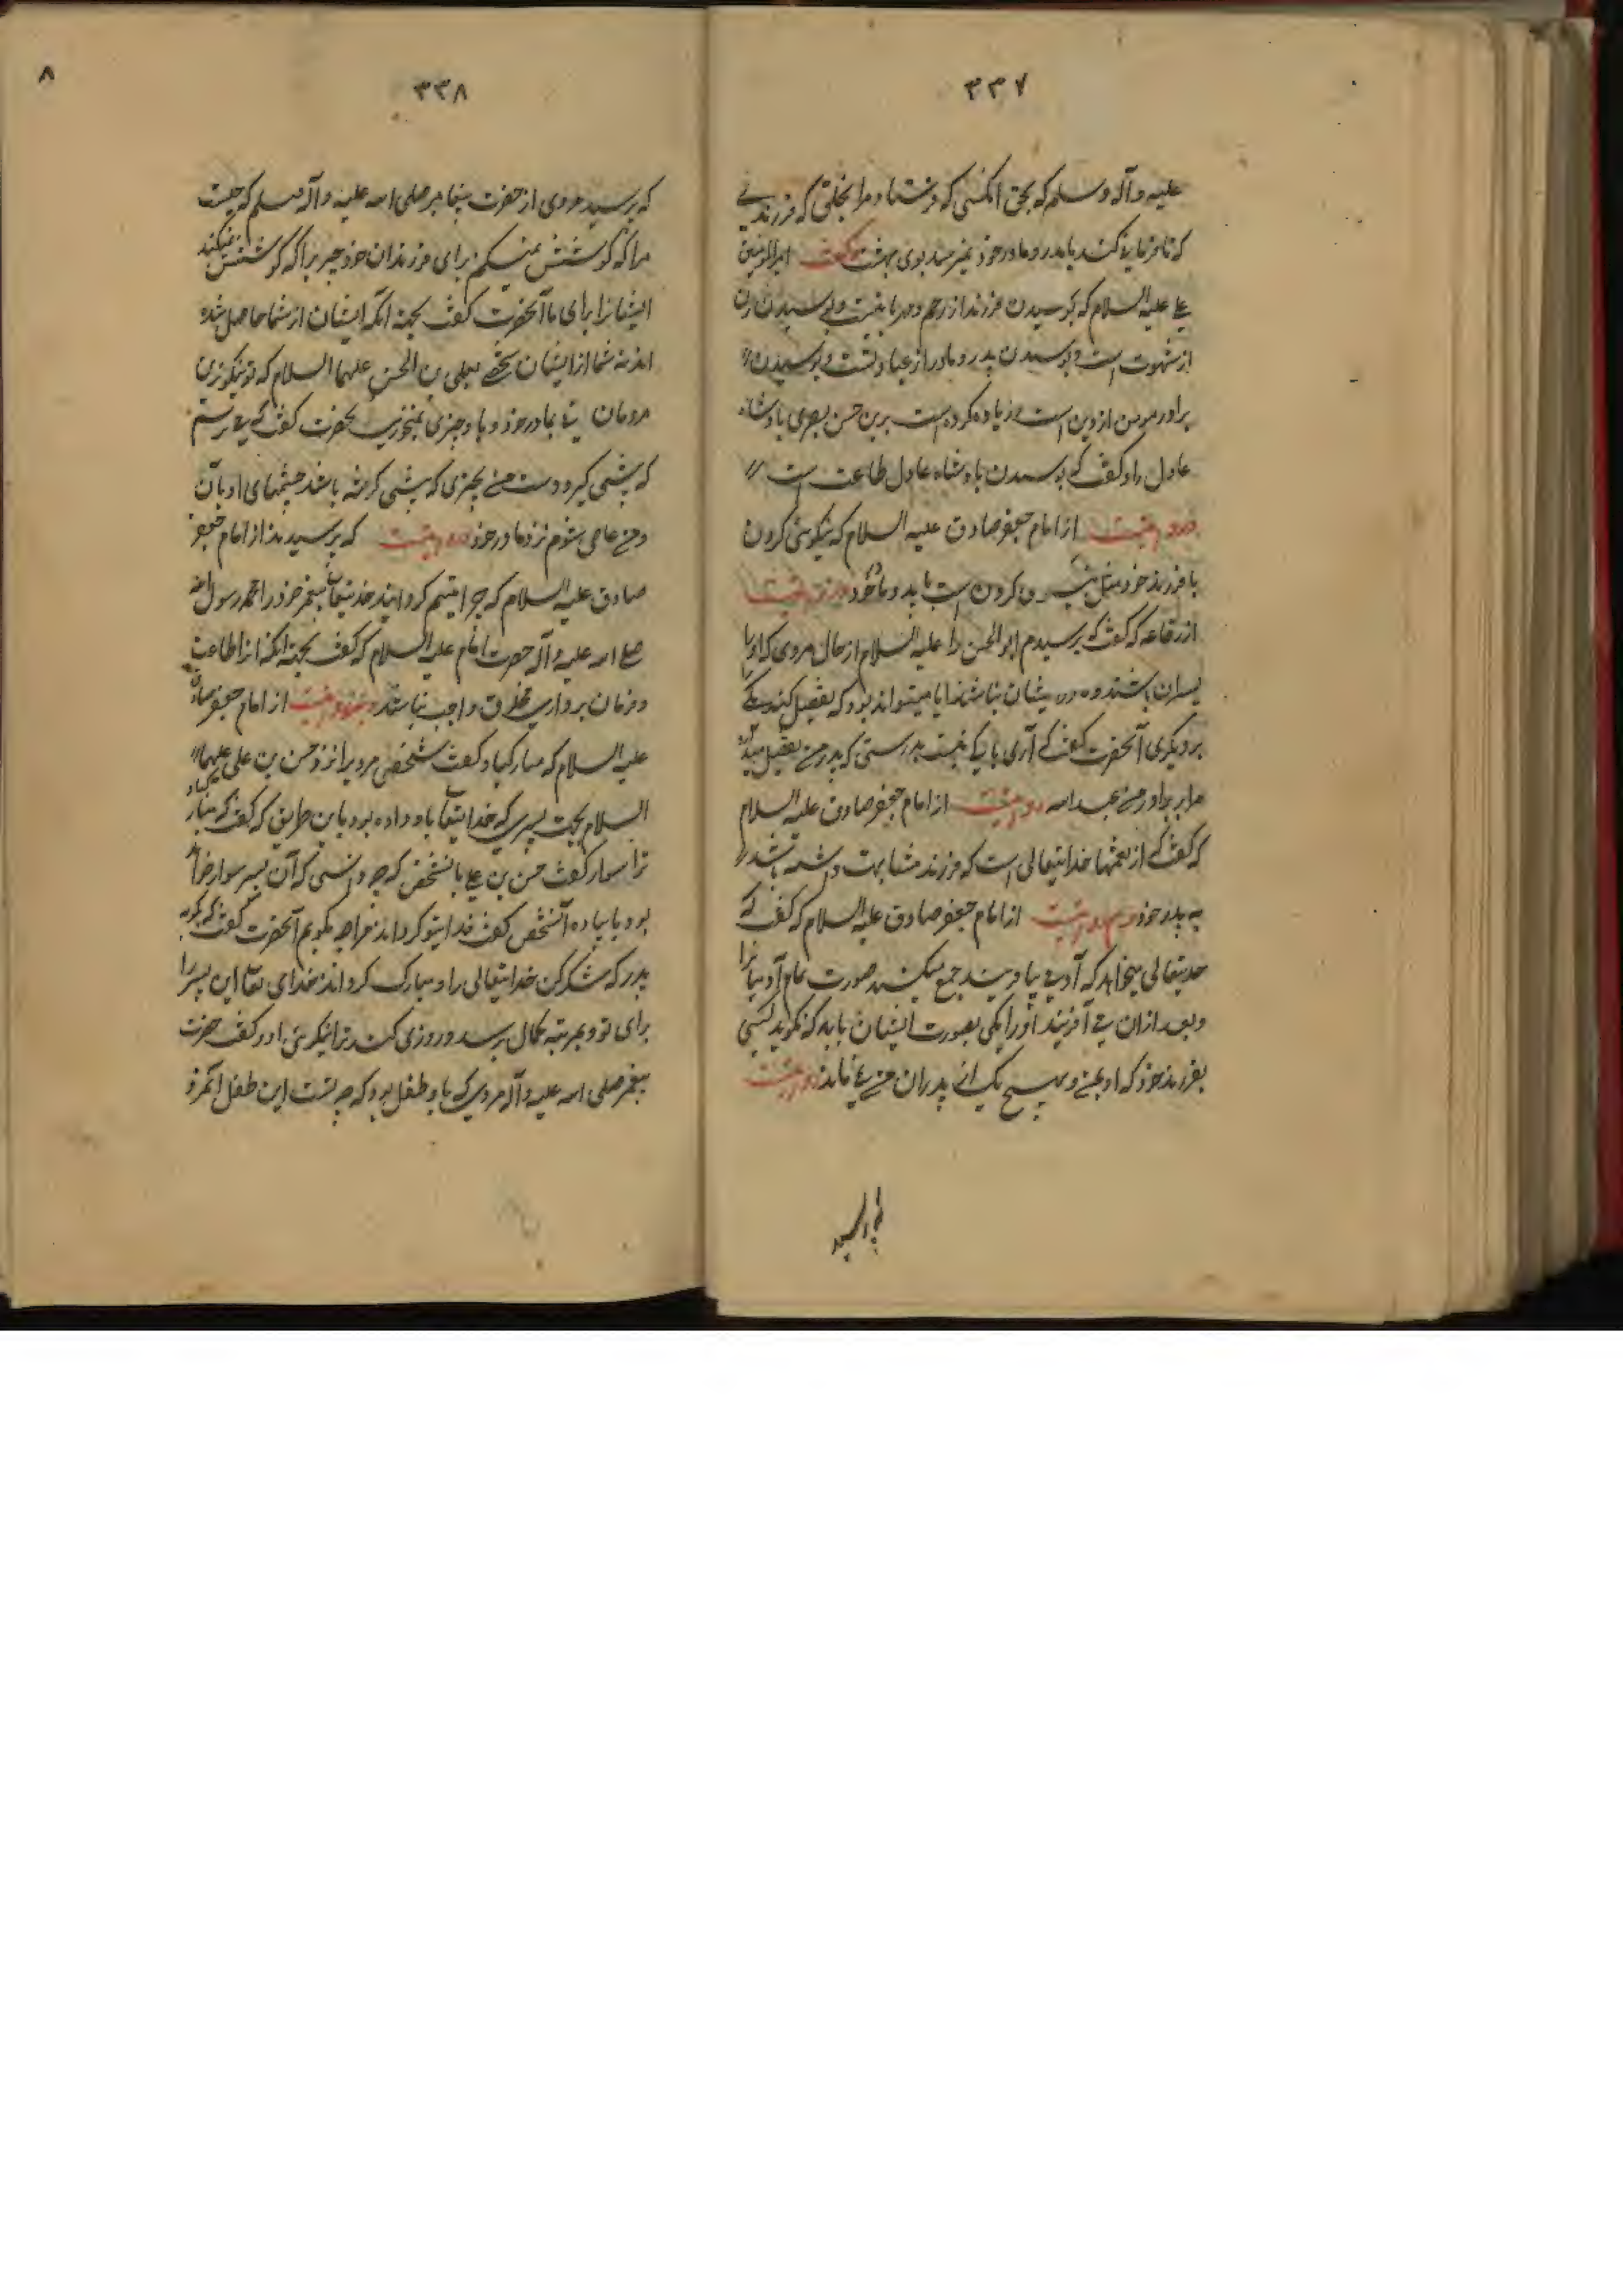 ۳۳۷
علیه و آله وسلم که بحق انکسی که فرستاد مرا بخلق که فرزندی
که نافرمانی کند با پدر و مادر خود نمیرسد بوی بهشت گفت امیرالمؤمنین
علی علیه السلام که بوسیدن فرزند از رحم و مهربانیست و بوسیدن زن
از شهوت است و بوسیدن پدر و مادر از عبادتست و بوسیدن
برادر مومن از دین است و زیاده کرده است برین حسن بصری پادشاه
عادل را و گفت که بوسیدن پادشاه عادل طاعت است
و مرویست از امام جعفر صادق علیه السلام که نیکوئی کردن
با فرزند خود مثل نیکوئی کردن است با پدر و مادر خود و مرویست
از رفاعه که گفت که پرسیدم ابوالحسن را علیه السلام از حال مردی که او را
پسران باشند و مادر ایشان نباشند ایا میتواند بود که تفضیل کند یکی
بر دیگری آنحضرت گفت که آری باکی نیست بدرستی که پدر من تفضیل میداد
مرا بر برادر من عبد الله و مرویست از امام جعفر صادق علیه السلام
که گفت که از نعمتها خدایتعالی است که فرزند مشابهت داشته باشد
به پدر خود و هم مرویست از امام جعفر صادق علیه السلام که گفت که
خدایتعالی میخواهد که آدمی بیافریند جمع میکند صورت تمام آدمیانرا
و بعد ازان می آفریند او را یکی بصورت ایشان باید که نگوید کسی
بفرزند خود که او بمن و بهیچ یک از پدران من نمی ماند و مرویست
۸
۳۳۸
که پرسید مردی از حضرت پیغامبر صلی الله علیه و آله وسلم که چیست
مرا که کوشش میکنم برای فرزندان خود چیزیرا که کوشش نمیکنند
ایشانرا برای ما آنحضرت گفت بجهة انکه ایشان از شما حاصل شده
اند نه شما از ایشان بعلی بن الحسین علیهما السلام که تو نیکوترین
مردمان با مادر خود و با او چیزی نمیخوری آنحضرت گفت که می ترسم
که پیشی گیرد دست من بچیزی که پیشی گرفته باشد چشمهای او بآن
و من عاصی شوم نزد مادر خود و مرویست که پرسیدند از امام جعفر
صادق علیه السلام که چرا یتیم گردانید خدایتعالی پیغمبر خود را محمد رسول الله
صلی الله علیه و آله حضرت امام علیه السلام که گفت بجهة انکه از اطاعت
و فرمان برداری مخلوق واجب نباشد و مرویست از امام جعفر صادق
علیه السلام که مبارکباد گفت شخصی مردیرا نزد حسن بن علی علیهما
السلام بجهت پسری که خدایتعالی باو داده بود باین طریق که گفت که مبارکباد
ترا سوار گفت حسن بن علی بآنشخص که چه دانستی که آن پسر سوار خواهد
بود یا پیاده آنشخص گفت فدایتو گرداند مرا چه بگویم آنحضرت گفت که بگو به
پدر که شکر کن خدایتعالی را و مبارک گرداند خدای تعالی این پسر را
برای تو و بمرتبه کمال برسد و روزی کند ترا نیکوئی او و گفت حضرت
پیغمبر صلی الله علیه و آله مردی که با او طفلی بود که چیست این طفل